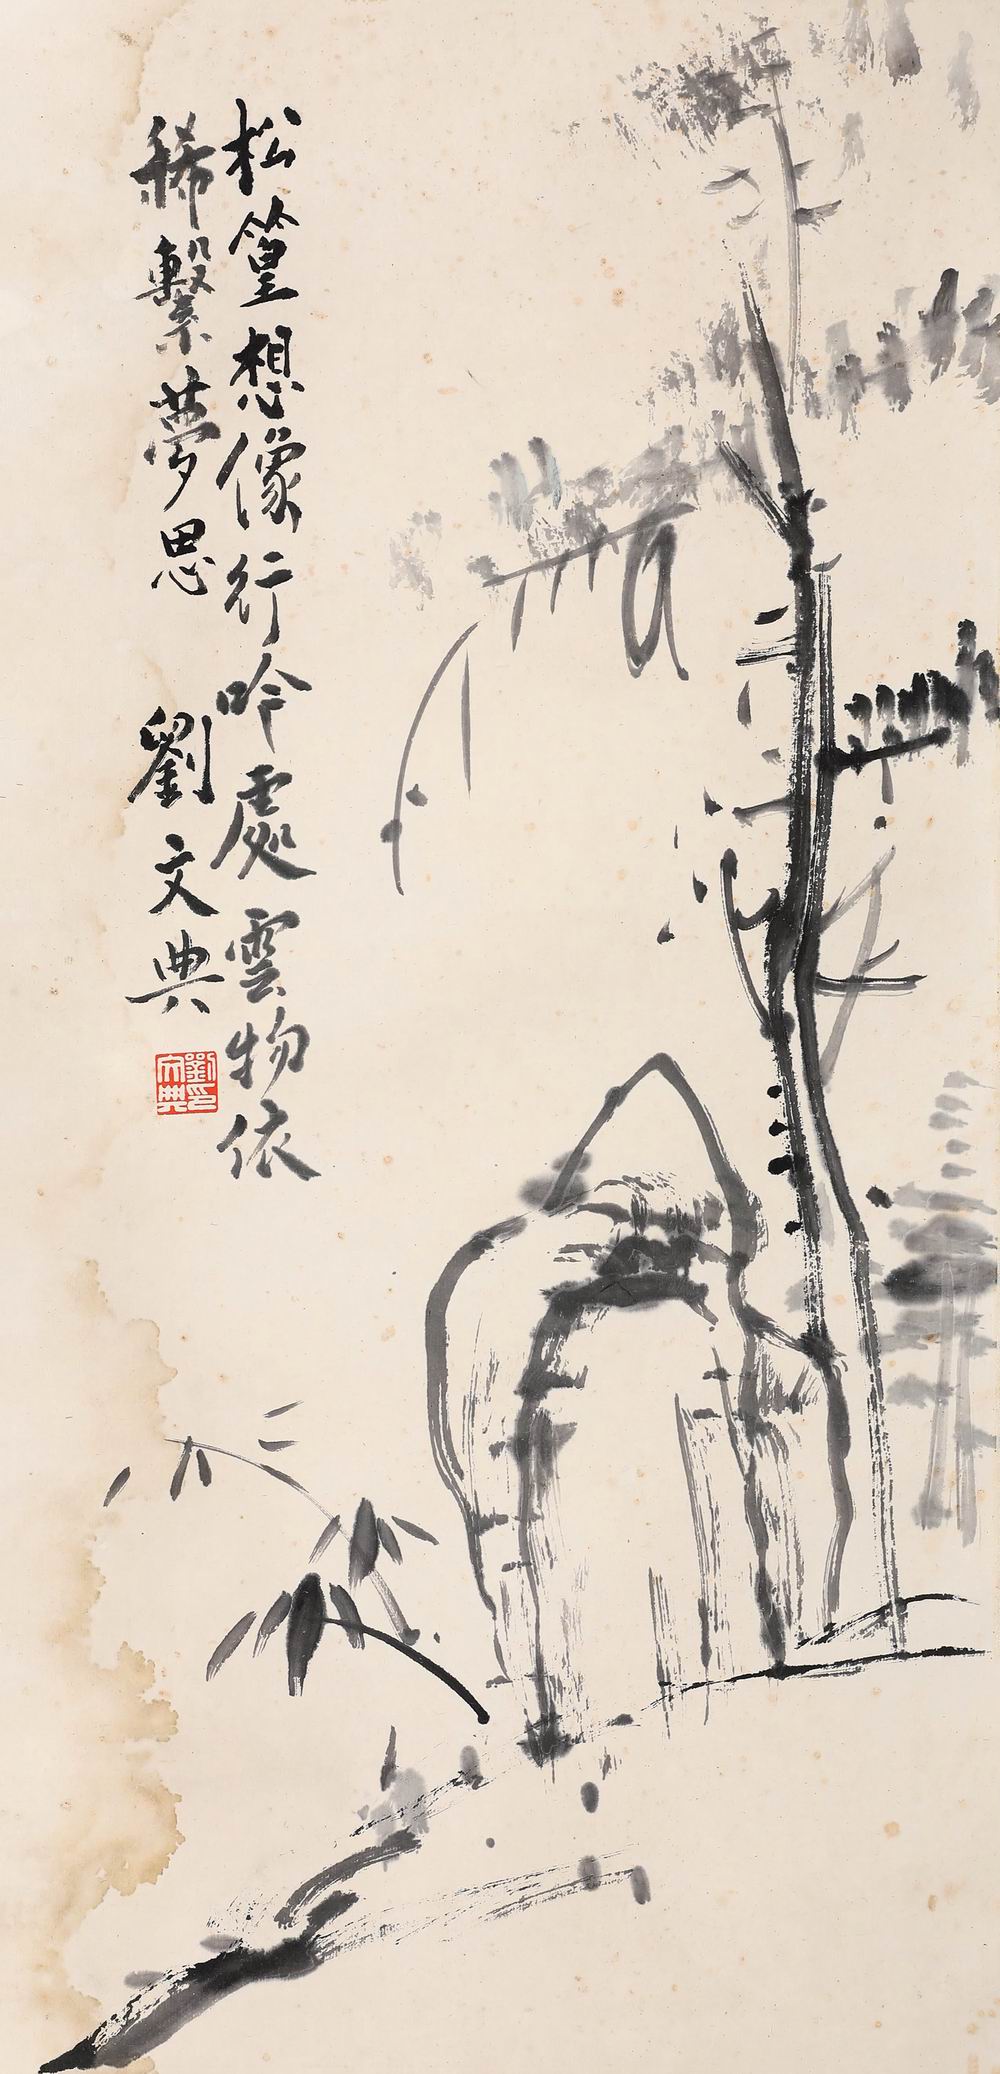 松篁想像行吟處雲物依
稀繫夢思 劉文典
劉文典印